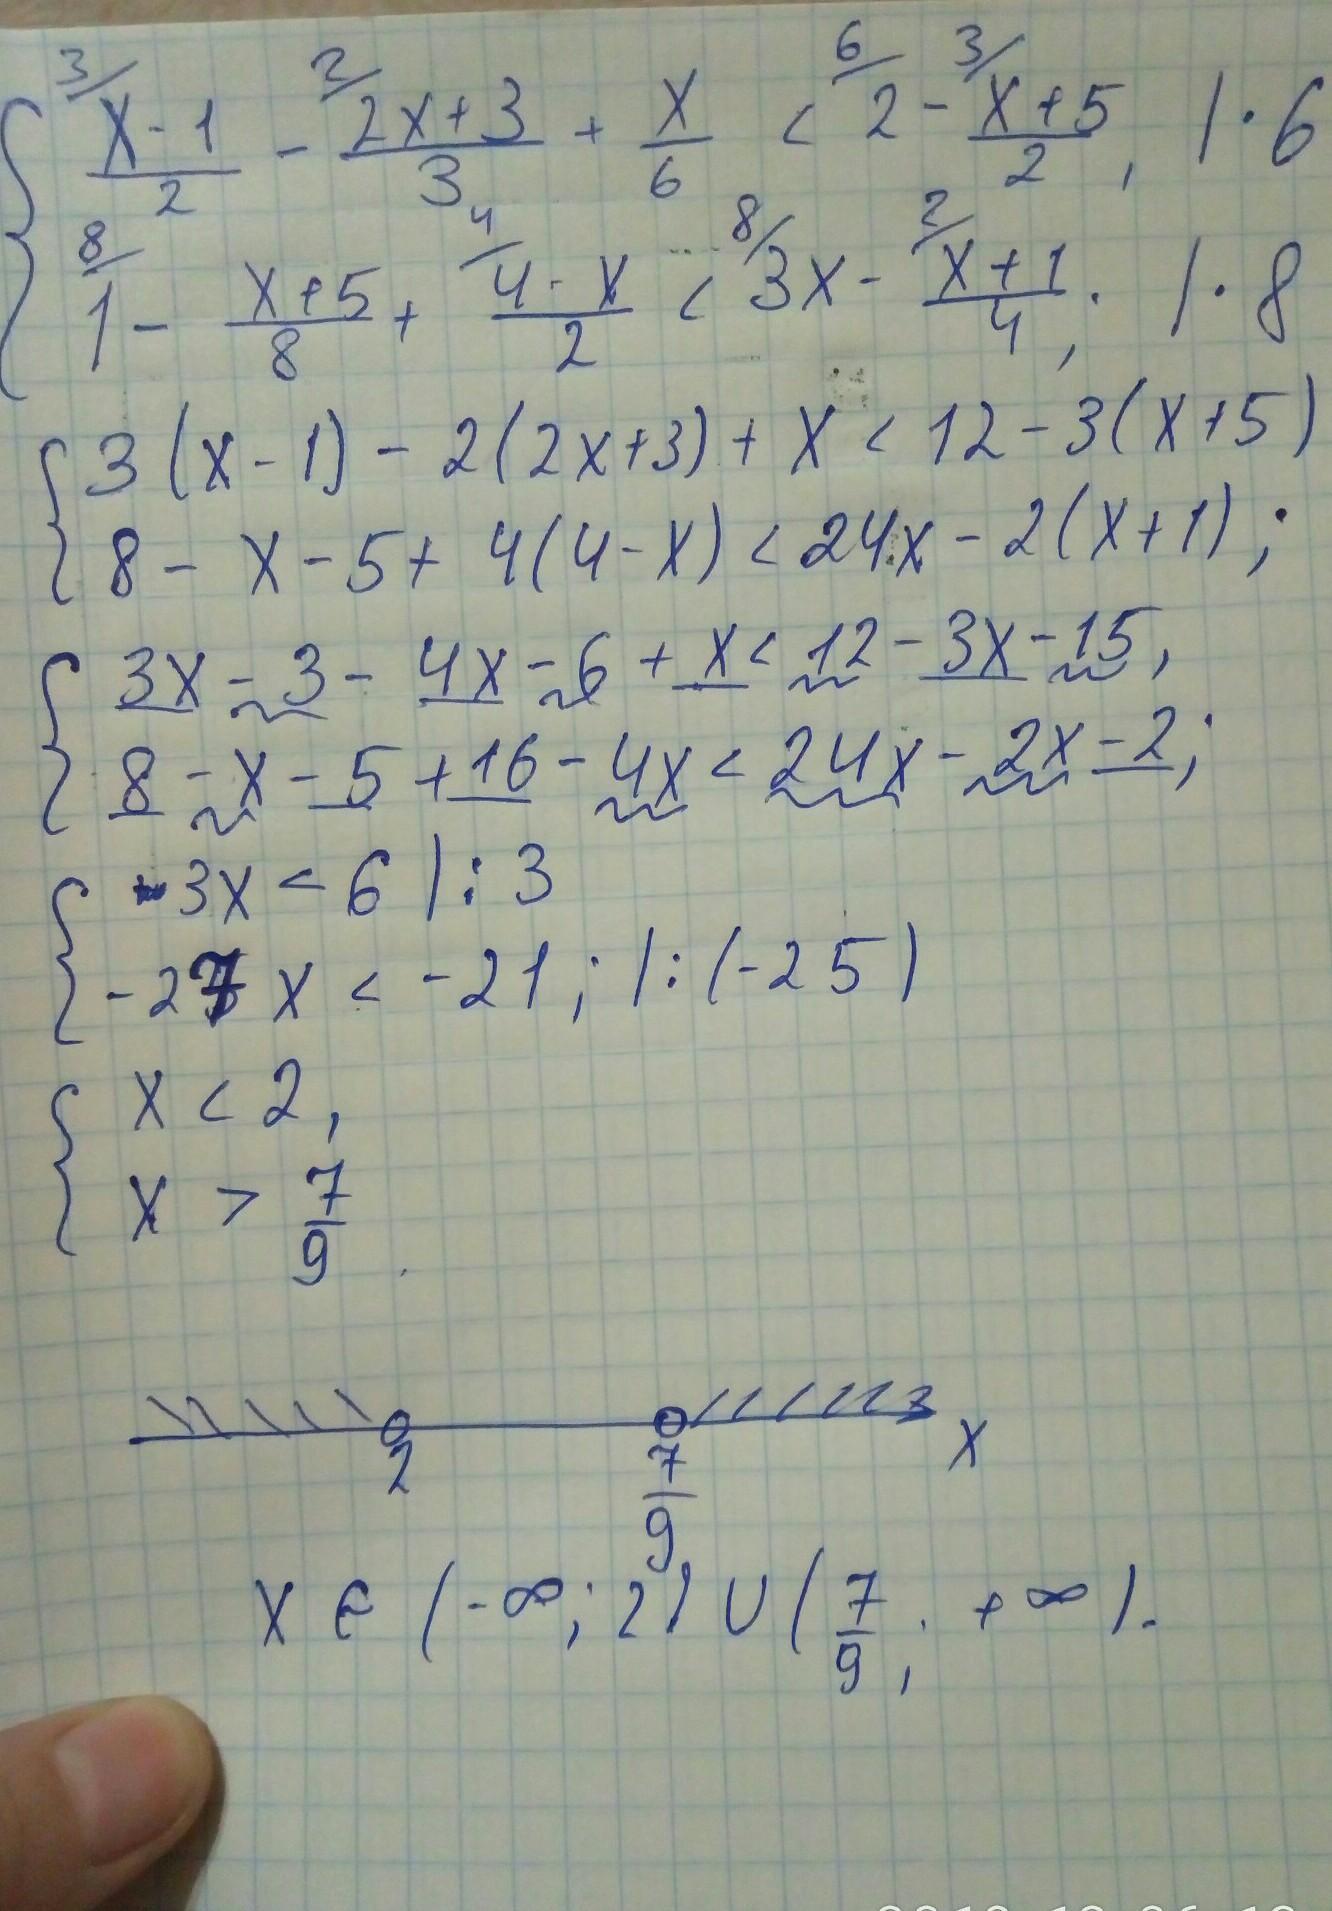 3/ (x-1)/2 - 2/ (2x+3)/3 + x/6 < 6/ 2 - 3/ (x+5)/2, |·6
8/ 1 - (x+5)/8 + 4/ (4-x)/2 < 8/ 3x - 2/ (x+1)/4; |·8
3(x-1) - 2(2x+3) + x < 12 - 3(x+5)
8 - x - 5 + 4(4-x) < 24x - 2(x+1);
3x - 3 - 4x - 6 + x < 12 - 3x - 15,
8 - x - 5 + 16 - 4x < 24x - 2x - 2;
3x < 6 |:3
-27x < -21; |:(-25)
x < 2,
x > 7/9.
2 7/9 x
x ∈ (-∞; 2) ∪ (7/9; +∞).